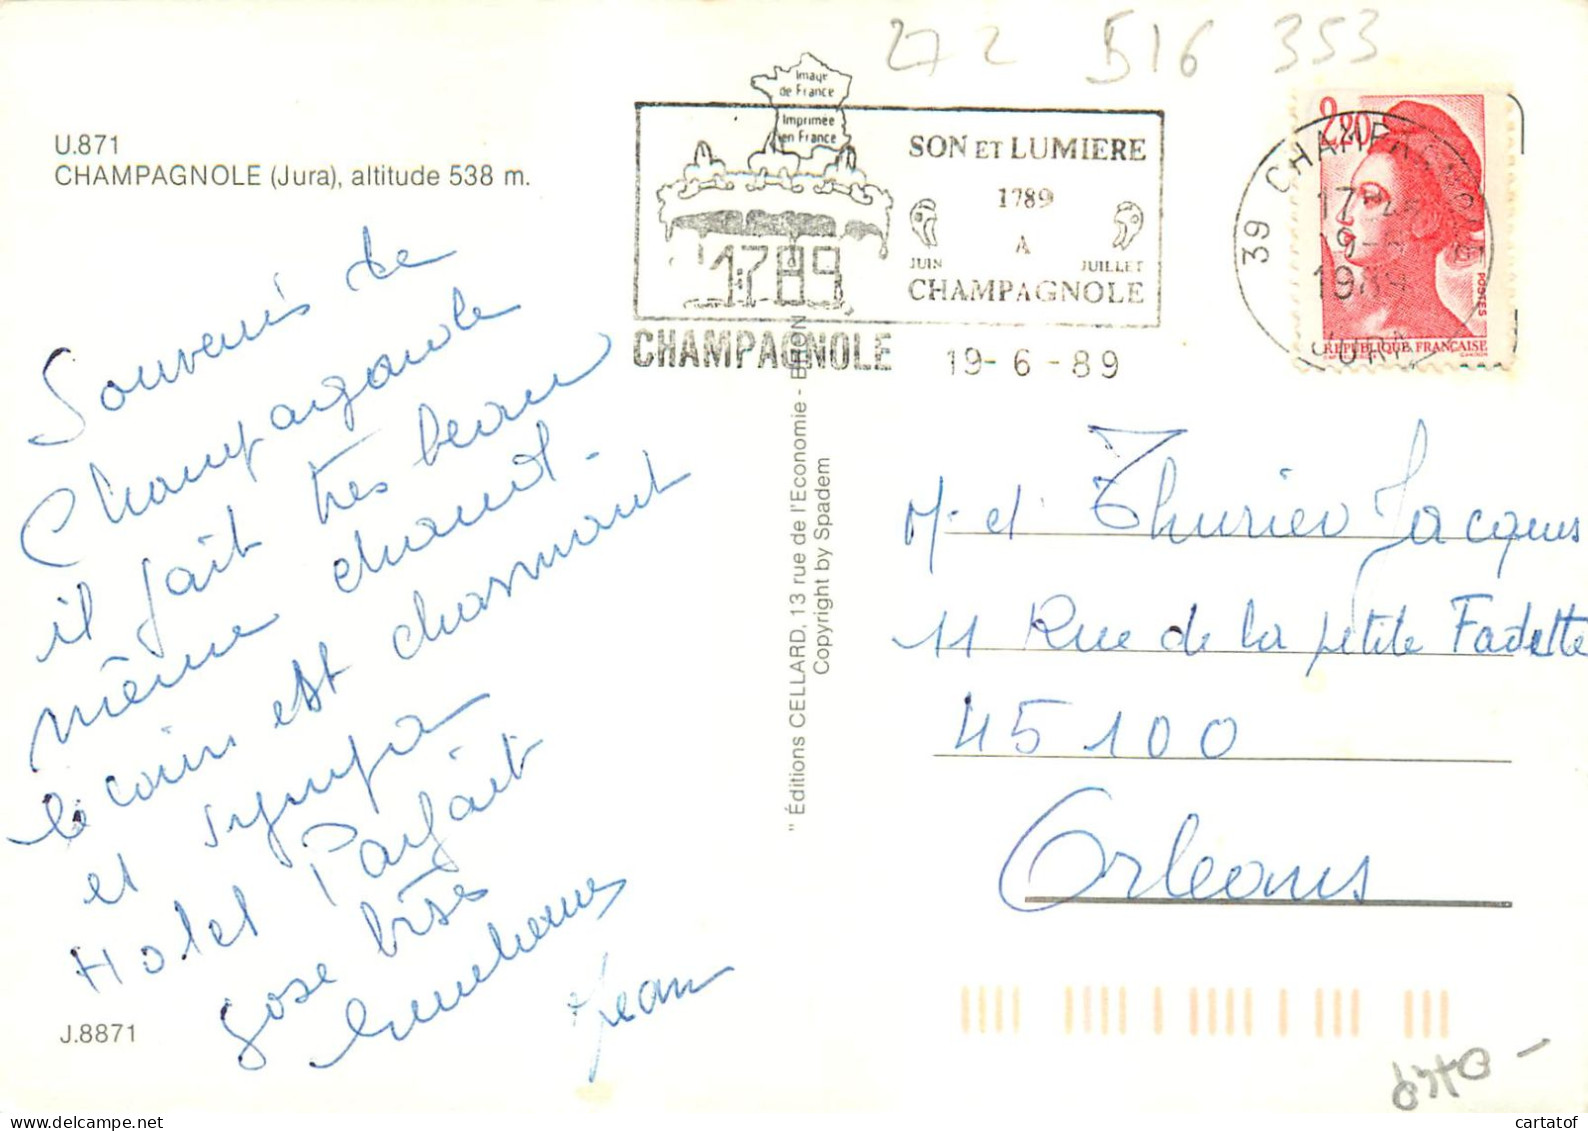 272 B16 353
U.871
CHAMPAGNOLE (Jura), altitude 538 m.
Image
de France
Imprimée
en France
1789
SON ET LUMIERE
1789
A
JUIN JUILLET
CHAMPAGNOLE
CHAMPAGNOLE 19-6-89
39 CHAMPAGNOLE
17H
19-6
1989
JURA
2,20
POSTES
REPUBLIQUE FRANÇAISE
Souvenirs de
Champagnole
il fait très beau
même chaud.
le coin est charmant
et sympa
Hotel Parfait
Grose bises
Jean
J.8871
" Éditions CELLARD, 13 rue de l'Economie - BRON
Copyright by Spadem
M. et Thurier Jacques
11 Rue de la petite Fadette
45100
Orleans
cartatof